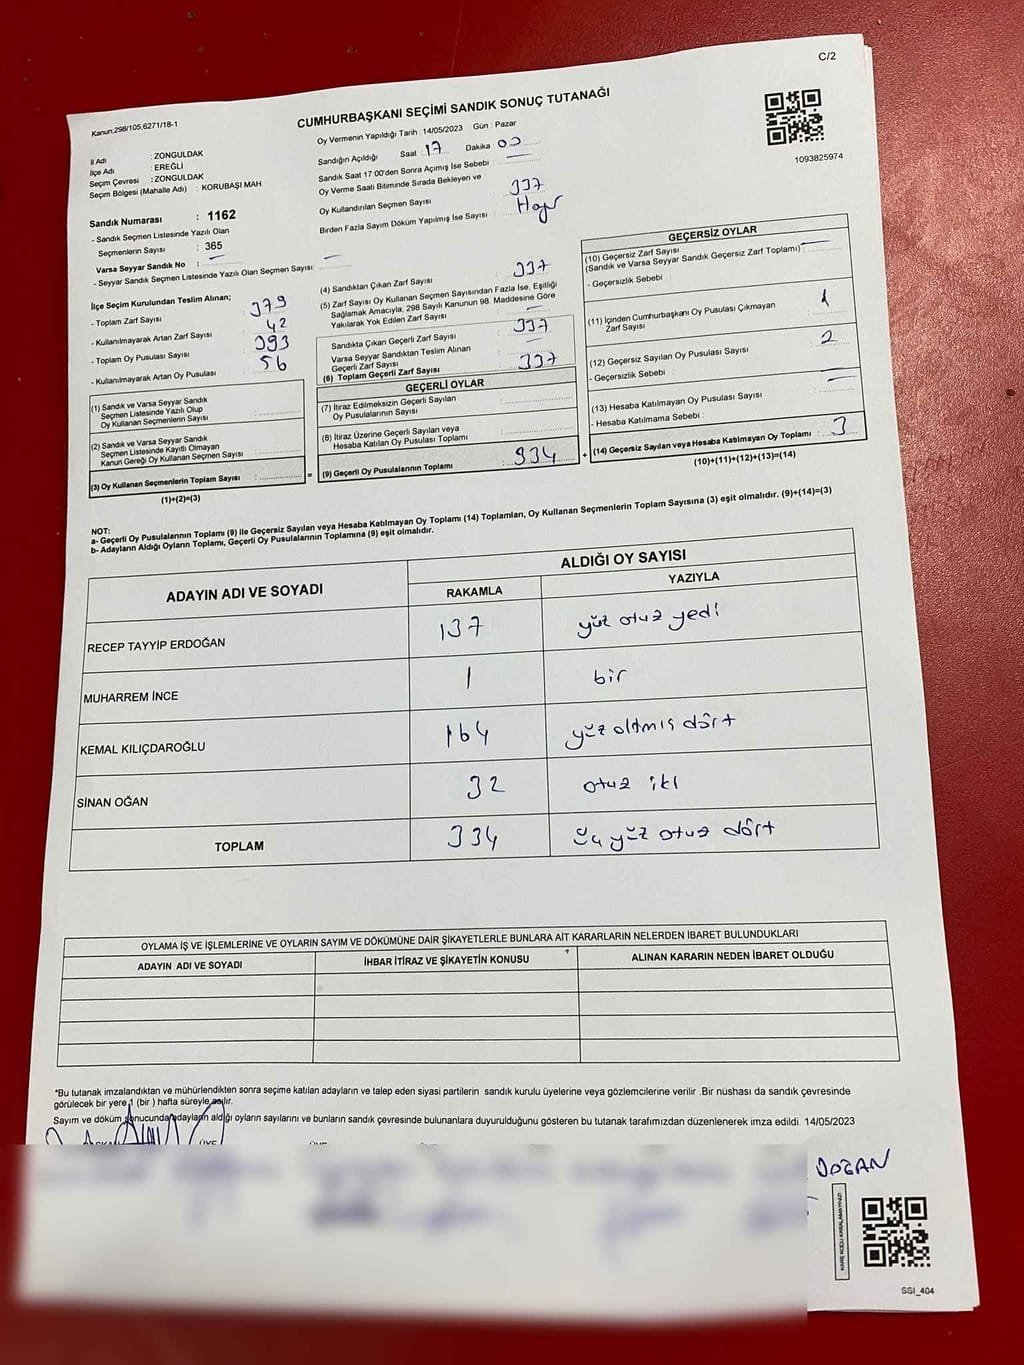 C/2
Kanun;298/105,6271/18-1
CUMHURBAŞKANI SEÇİMİ SANDIK SONUÇ TUTANAĞI
Oy Vermenin Yapıldığı Tarih : 14/05/2023 Gün : Pazar
Sandığın Açıldığı Saat 17 Dakika : 00
Sandık Saat 17:00'den Sonra Açımış İse Sebebi :
Oy Verme Saati Bitiminde Sırada Bekleyen ve
Oy Kullandırılan Seçmen Sayısı : 337
Birden Fazla Sayım Döküm Yapılmış İse Sayısı : Hayır
1093825974
İl Adı : ZONGULDAK
İlçe Adı : EREĞLİ
Seçim Çevresi : ZONGULDAK
Seçim Bölgesi (Mahalle Adı) : KORUBAŞI MAH
Sandık Numarası : 1162
- Sandık Seçmen Listesinde Yazılı Olan
Seçmenlerin Sayısı : 365
Varsa Seyyar Sandık No :
- Seyyar Sandık Seçmen Listesinde Yazılı Olan Seçmen Sayısı:
İlçe Seçim Kurulundan Teslim Alınan;
- Toplam Zarf Sayısı : 379
- Kullanılmayarak Artan Zarf Sayısı : 42
- Toplam Oy Pusulası Sayısı : 393
- Kullanılmayarak Artan Oy Pusulası : 56
(1) Sandık ve Varsa Seyyar Sandık
Seçmen Listesinde Yazılı Olup
Oy Kullanan Seçmenlerin Sayısı :
(2) Sandık ve Varsa Seyyar Sandık
Seçmen Listesinde Kayıtlı Olmayan
Kanun Gereği Oy Kullanan Seçmen Sayısı :
(3) Oy Kullanan Seçmenlerin Toplam Sayısı :
(1)+(2)=(3)
(4) Sandıktan Çıkan Zarf Sayısı : 337
(5) Zarf Sayısı Oy Kullanan Seçmen Sayısından Fazla İse, Eşitliği
Sağlamak Amacıyla; 298 Sayılı Kanunun 98. Maddesine Göre
Yakılarak Yok Edilen Zarf Sayısı :
Sandıkta Çıkan Geçerli Zarf Sayısı : 337
Varsa Seyyar Sandıktan Teslim Alınan
Geçerli Zarf Sayısı :
(6) Toplam Geçerli Zarf Sayısı : 337
GEÇERLİ OYLAR
(7) İtiraz Edilmeksizin Geçerli Sayılan
Oy Pusulalarının Sayısı :
(8) İtiraz Üzerine Geçerli Sayılan veya
Hesaba Katılan Oy Pusulası Toplamı :
(9) Geçerli Oy Pusulalarının Toplamı : 334
=
+
GEÇERSİZ OYLAR
(10) Geçersiz Zarf Sayısı
(Sandık ve Varsa Seyyar Sandık Geçersiz Zarf Toplamı) :
- Geçersizlik Sebebi :
(11) İçinden Cumhurbaşkanı Oy Pusulası Çıkmayan
Zarf Sayısı : 1
(12) Geçersiz Sayılan Oy Pusulası Sayısı : 2
- Geçersizlik Sebebi :
(13) Hesaba Katılmayan Oy Pusulası Sayısı :
- Hesaba Katılmama Sebebi :
(14) Geçersiz Sayılan veya Hesaba Katılmayan Oy Toplamı : 3
(10)+(11)+(12)+(13)=(14)
NOT:
a- Geçerli Oy Pusulalarının Toplamı (9) ile Geçersiz Sayılan veya Hesaba Katılmayan Oy Toplamı (14) Toplamları, Oy Kullanan Seçmenlerin Toplam Sayısına (3) eşit olmalıdır. (9)+(14)=(3)
b- Adayların Aldığı Oyların Toplamı, Geçerli Oy Pusulalarının Toplamına (9) eşit olmalıdır.
ADAYIN ADI VE SOYADI
ALDIĞI OY SAYISI
RAKAMLA YAZIYLA
RECEP TAYYİP ERDOĞAN 137 yüz otuz yedi
MUHARREM İNCE 1 bir
KEMAL KILIÇDAROĞLU 164 yüz altmış dört
SİNAN OĞAN 32 otuz iki
TOPLAM 334 üç yüz otuz dört
OYLAMA İŞ VE İŞLEMLERİNE VE OYLARIN SAYIM VE DÖKÜMÜNE DAİR ŞİKAYETLERLE BUNLARA AİT KARARLARIN NELERDEN İBARET BULUNDUKLARI
ADAYIN ADI VE SOYADI İHBAR İTİRAZ VE ŞİKAYETİN KONUSU ALINAN KARARIN NEDEN İBARET OLDUĞU
*Bu tutanak imzalandıktan ve mühürlendikten sonra seçime katılan adayların ve talep eden siyasi partilerin sandık kurulu üyelerine veya gözlemcilerine verilir .Bir nüshası da sandık çevresinde
görülecek bir yere 1 (bir ) hafta süreyle asılır.
Sayım ve döküm sonucunda adayların aldığı oyların sayılarını ve bunların sandık çevresinde bulunanlara duyurulduğunu gösteren bu tutanak tarafımızdan düzenlenerek imza edildi. 14/05/2023
ÜYE
DOĞAN
SSI_404